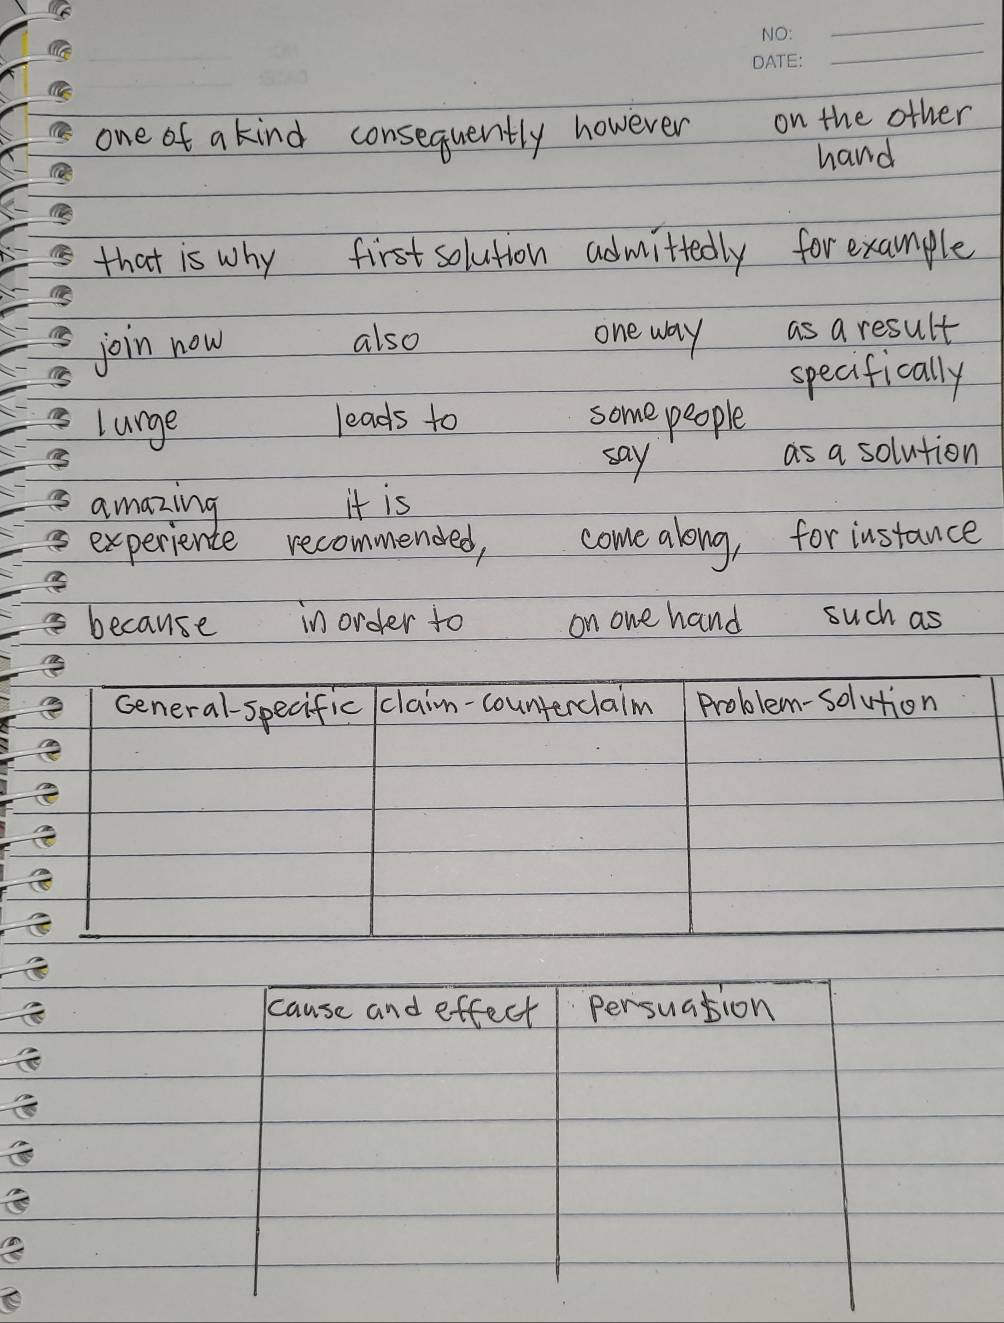 NO:
DATE:
one of a kind consequently however on the other
hand
that is why first solution admittedly for example
join now also one way as a result
specifically
I urge leads to some people
say as a solution
amazing it is
experience recommended, come along, for instance
because in order to on one hand such as
General-specific claim-counterclaim Problem-solution
cause and effect Persuasion